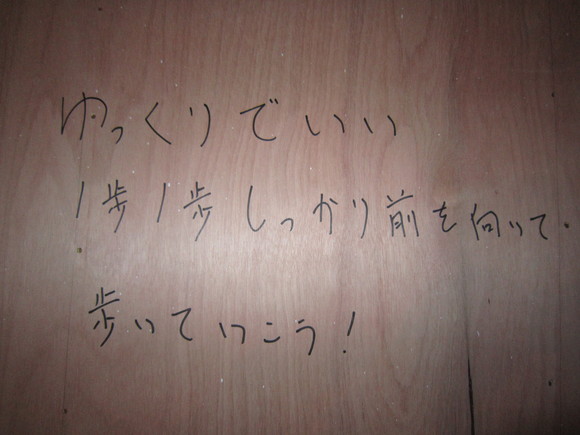 ゆっくりでいい
1歩1歩しっかり前を向いて、
歩いていこう！